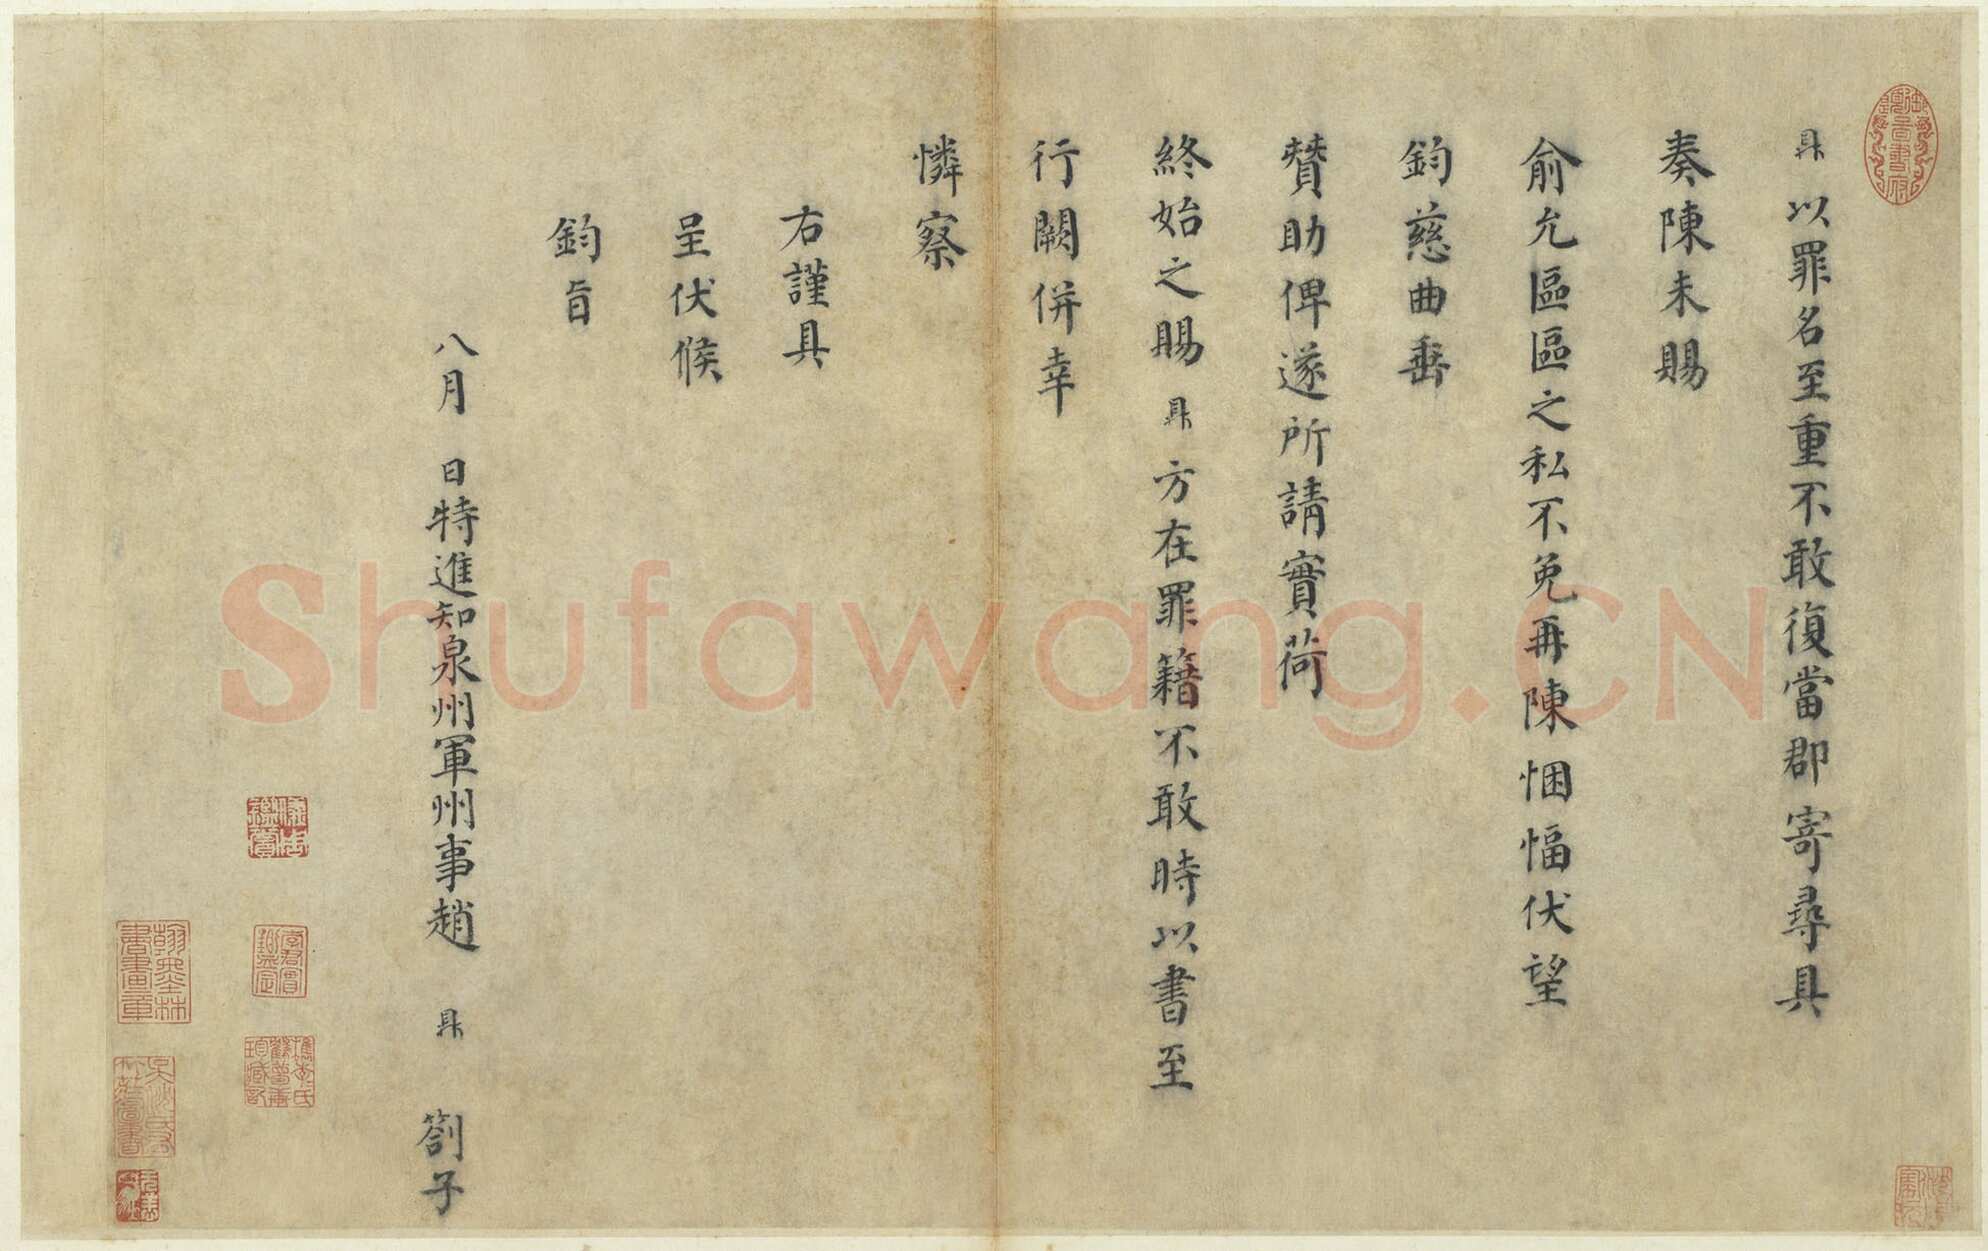 鼎以罪名至重不敢復當郡寄尋具
奏陳未賜
俞允區區之私不免再陳悃愊伏望
鈞慈曲垂
贊助俾遂所請實荷
終始之賜鼎方在罪籍不敢時以書至
行闕併幸
憐察
右謹具
呈伏候
鈞旨
八月 日特進知泉州軍州事趙 鼎 劄子
翰墨林書畫章
Shufawang.CN